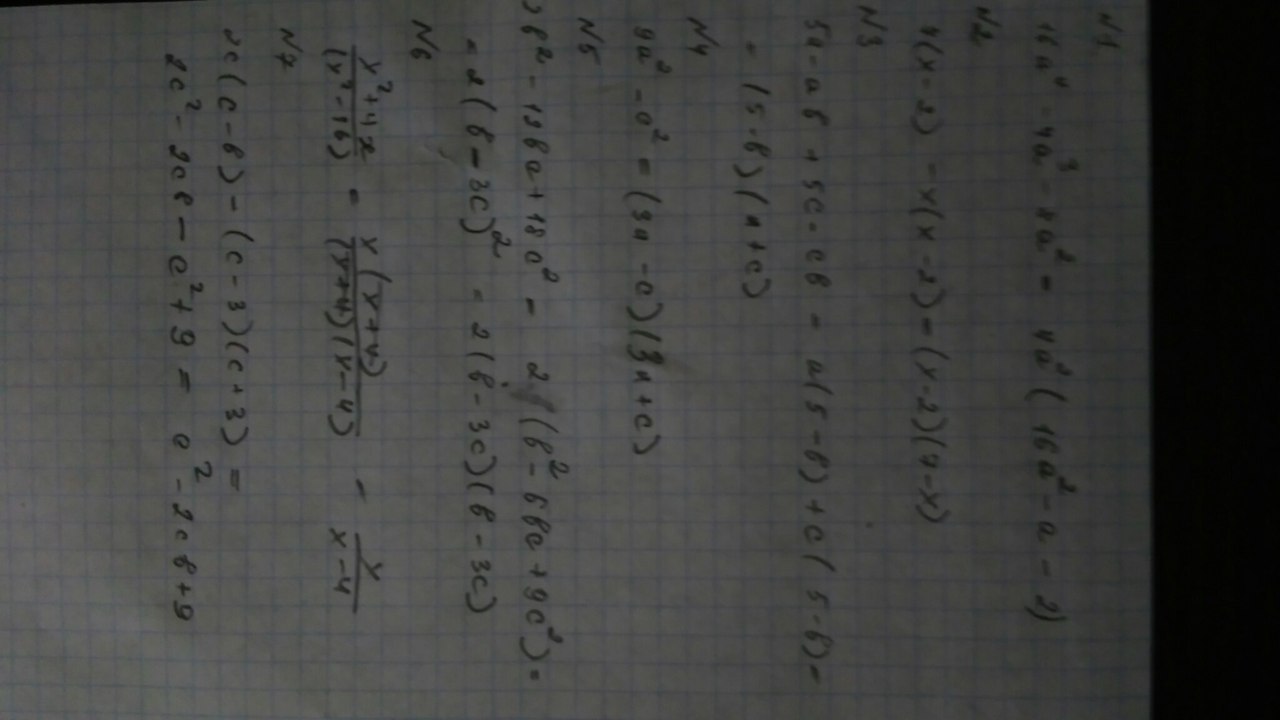 N1
16a⁴ - 4a³ - 8a² = 4a²(16a² - a - 2)
N2
7(x-2) - x(x-2) = (x-2)(7-x)
N3
5a - aб + 5c - cб = a(5-б) + c(5-б) =
= (5-б)(a+c)
N4
9a² - c² = (3a - c)(3a + c)
N5
б² - 12бc + 18c² = 2(б² - 6бc + 9c²) =
= 2(б - 3c)² = 2(б - 3c)(б - 3c)
N6
x² + 4x / (x² - 16) = x(x+4) / (x+4)(x-4) = x / x-4
N7
2c(c-б) - (c-3)(c+3) =
2c² - 2cб - c² + 9 = c² - 2cб + 9